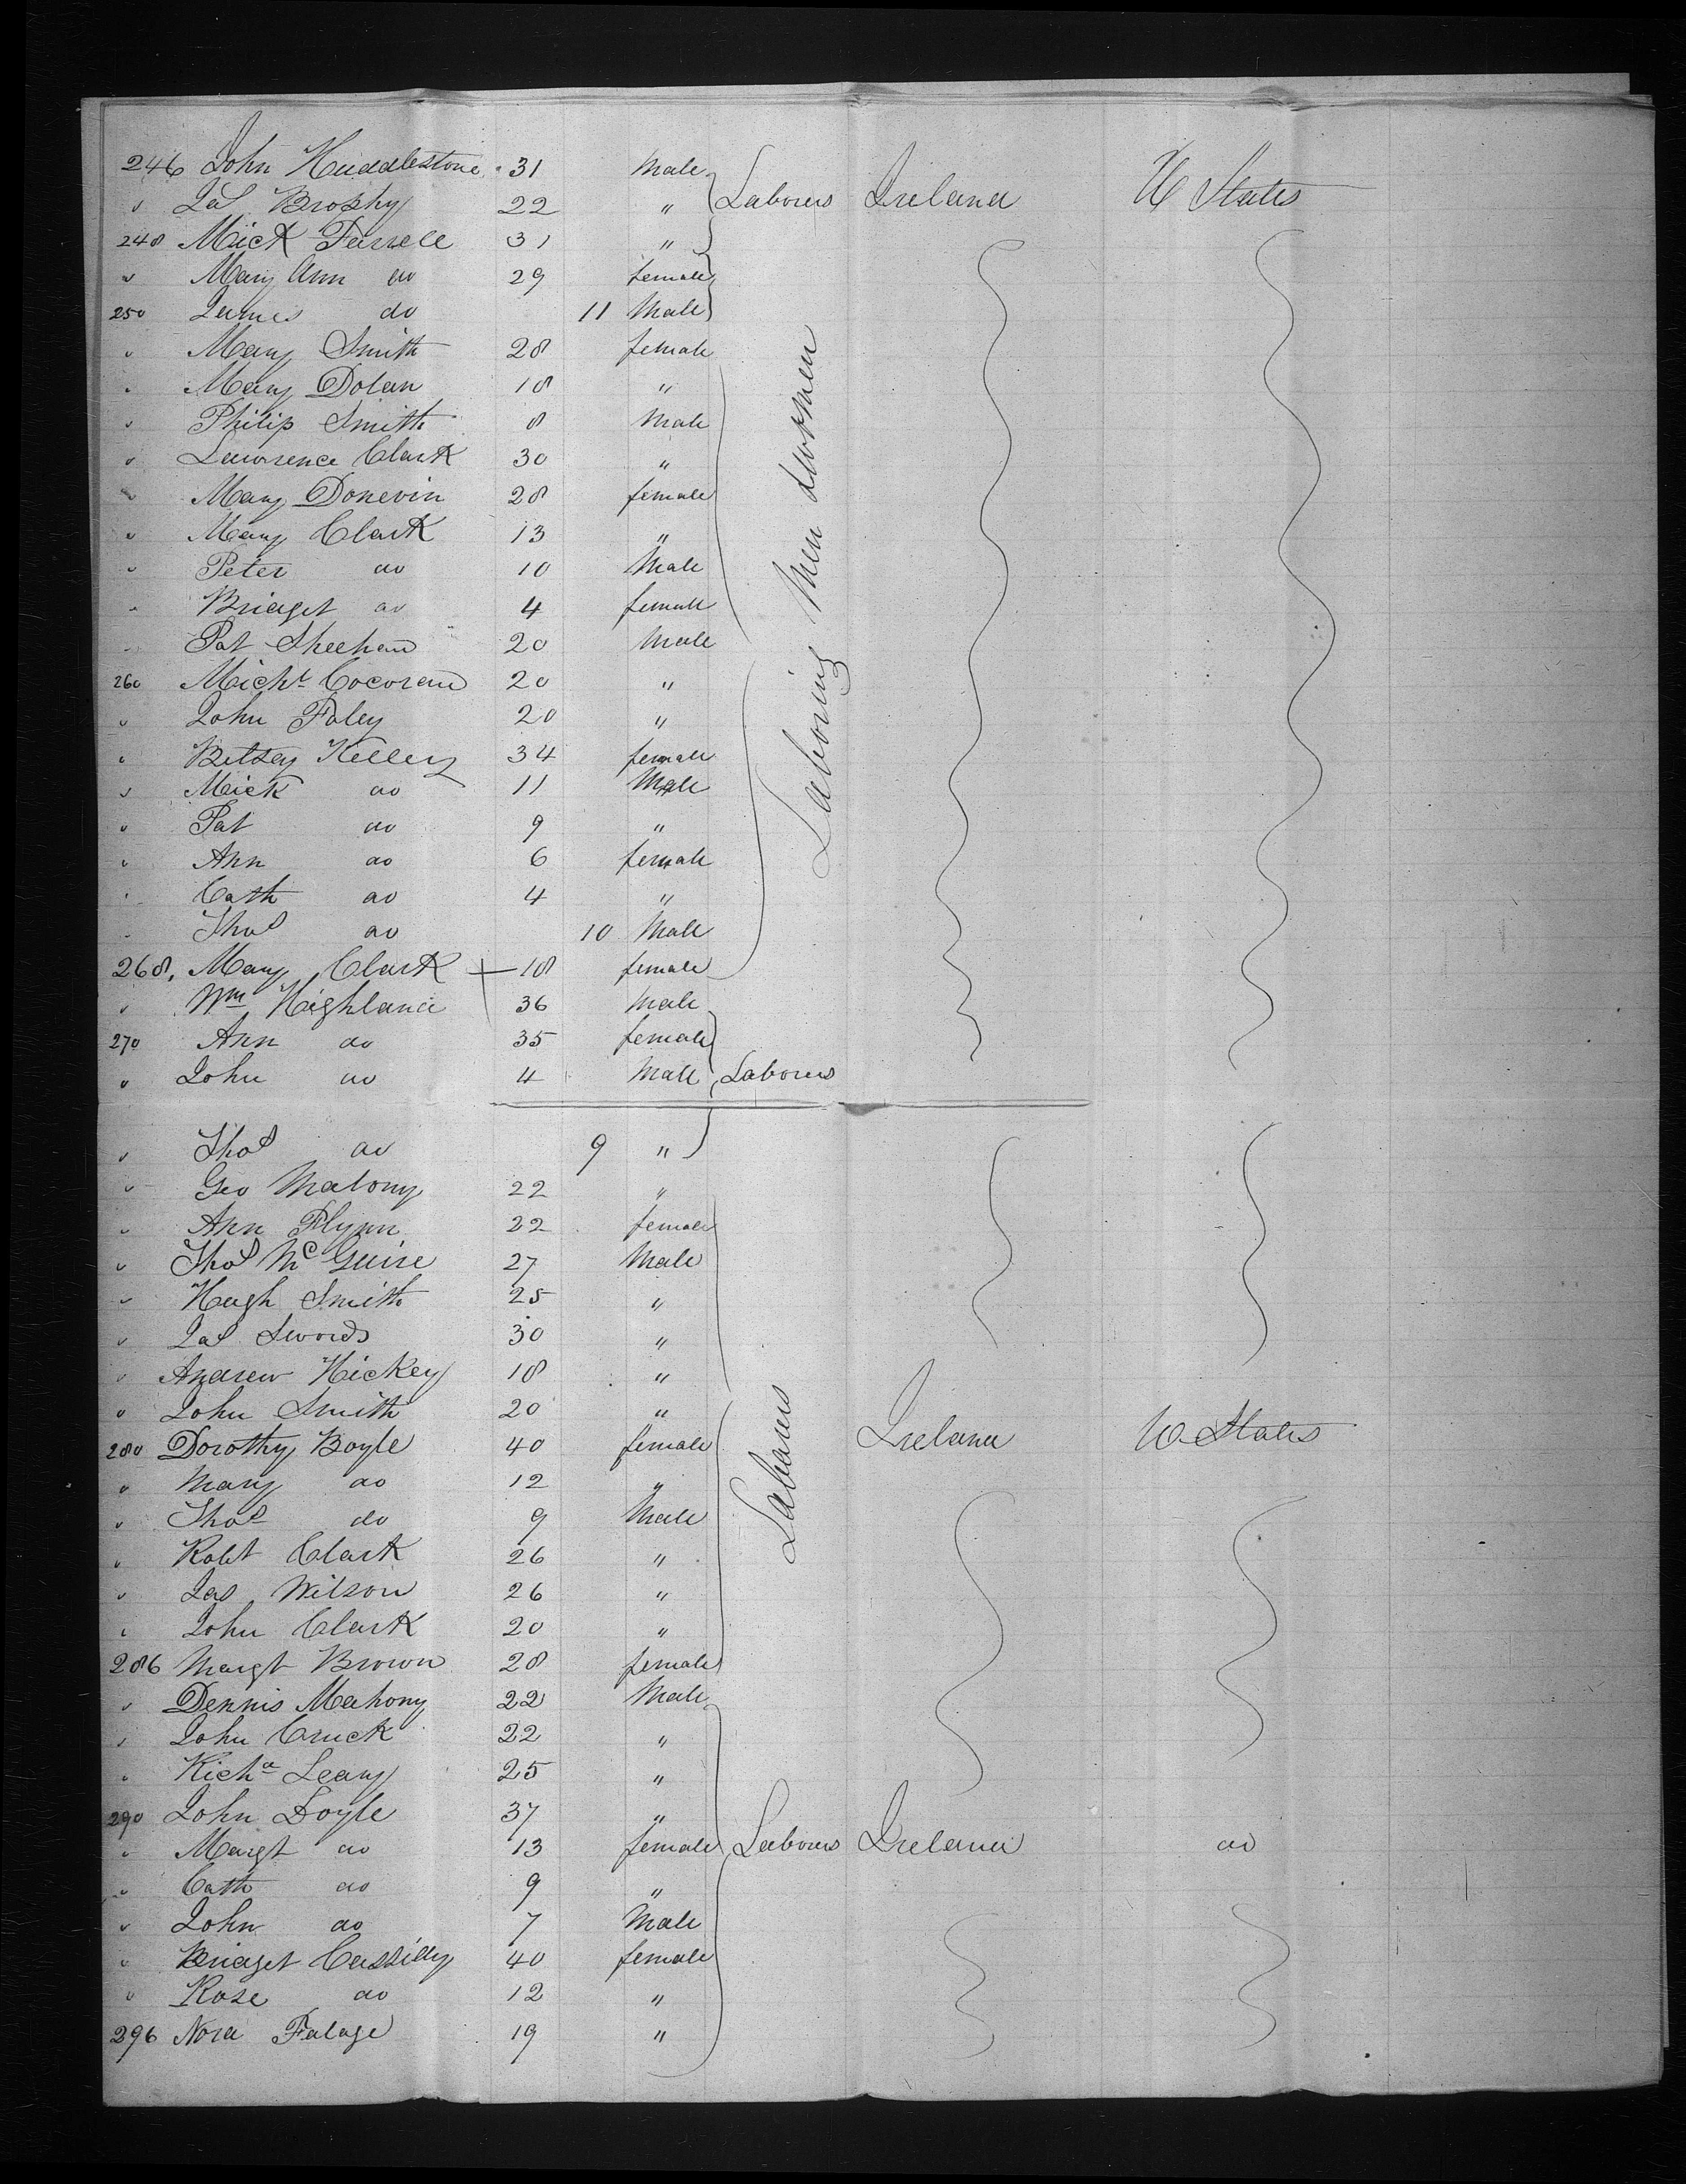 246 John Huddlestone 31 Male Laborers Ireland U States
" Jas Brophy 22 "
248 Mick Farrell 31 "
" Mary Ann do 29 female
250 James do 11 Male
" Mary Smith 28 female
" Mary Dolan 18 "
" Philip Smith 8 Male
" Lawrence Clark 30 "
" Mary Donevin 28 female
" Mary Clark 13 "
" Peter do 10 Male
" Bridget do 4 female
" Pat Sheehan 20 Male
260 Michl Cocoran 20 "
" John Foley 20 "
" Betsey Kelley 34 female
" Mick do 11 Male
" Pat do 9 "
" Ann do 6 female
" Cath do 4 "
" Thos do 10 Male
Laboring Men women
268. Mary Clark 18 female
" Wm Highland 36 Male
270 Ann do 35 female
" John do 4 Male Laborers
" Thos do 9 "
" Geo Malony 22 "
" Ann Flynn 22 female
" Thos McGuire 27 Male
" Hugh Smith 25 "
" Jas Swords 30 "
" Andrew Hickey 18 "
" John Smith 20 "
280 Dorothy Boyle 40 female Laborers Ireland U States
" Mary do 12 "
" Thos do 9 Male
" Robt Clark 26 "
" Jas Wilson 26 "
" John Clark 20 "
286 Margt Brown 28 female
" Dennis Mahony 22 Male
" John Cruck 22 "
" Richd Leary 25 "
290 John Doyle 37 "
" Margt do 13 female Laborers Ireland do
" Cath do 9 "
" John do 7 Male
" Bridget Cassidy 40 female
" Rose do 12 "
296 Nora 19 "